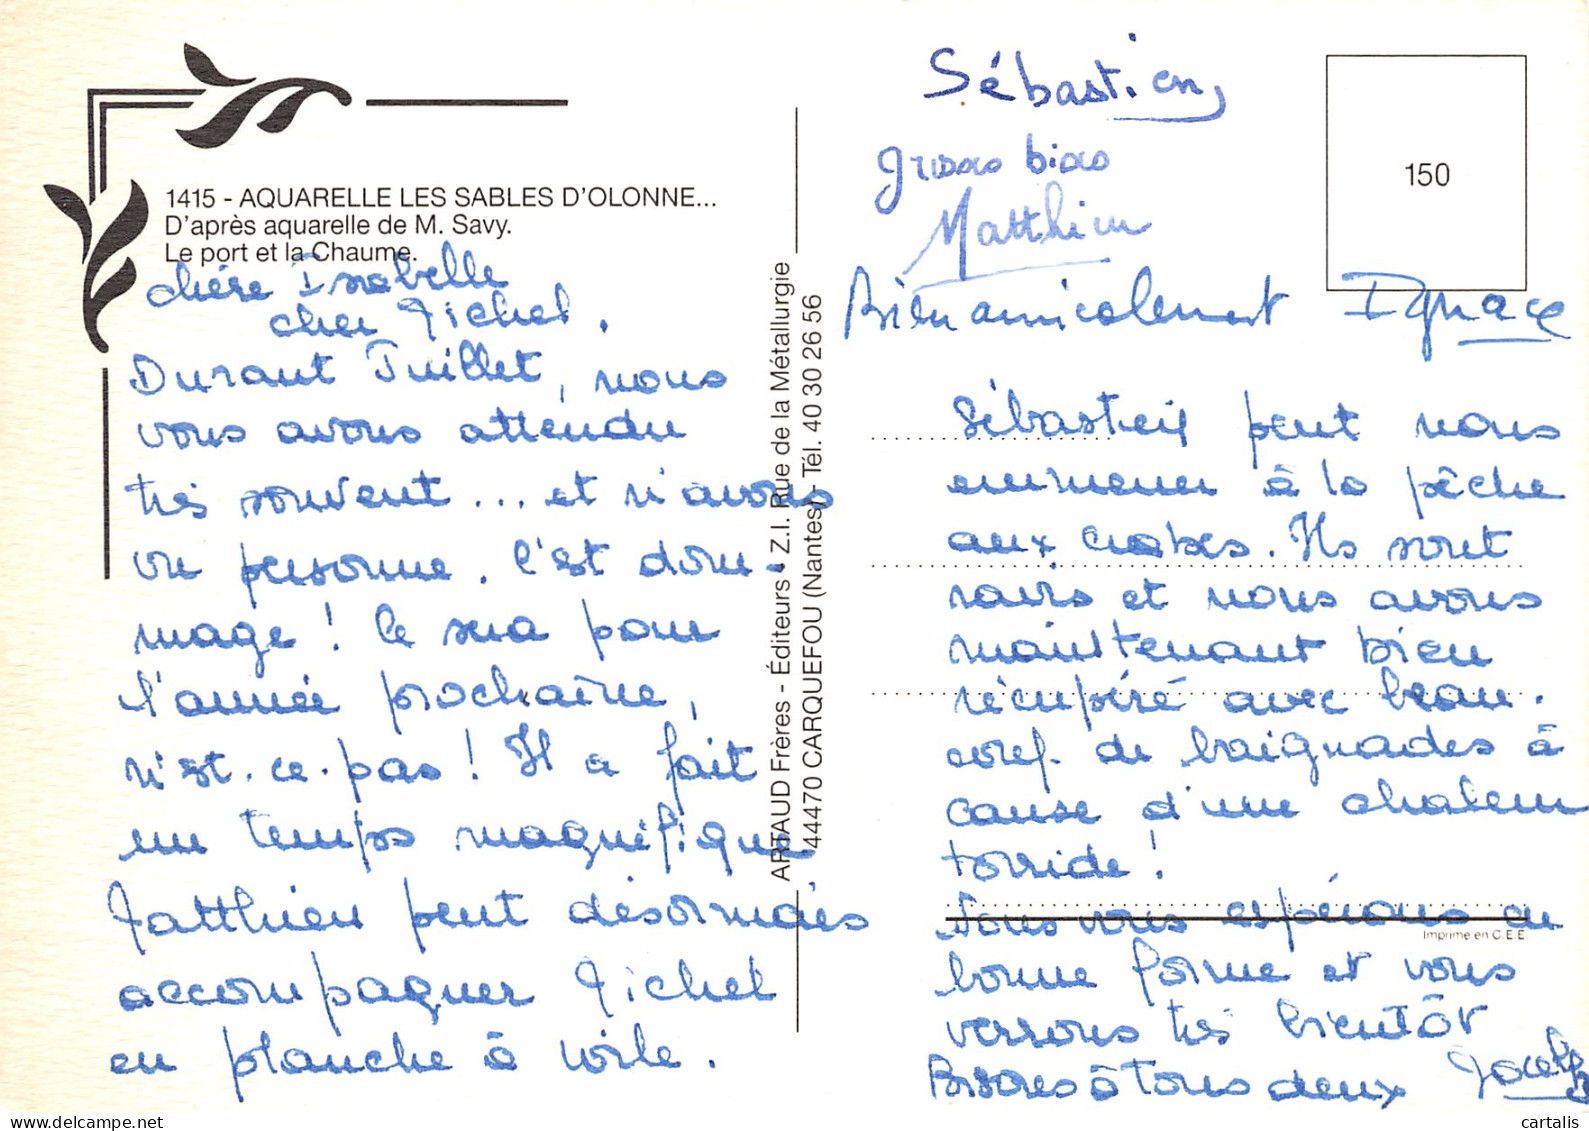 1415 - AQUARELLE LES SABLES D'OLONNE...
D'après aquarelle de M. Savy.
Le port et la Chaume.
chère Isabelle
cher Michel.
Durant Juillet, nous
vous avons attendu
très souvent ... et n'avons
vu personne. C'est dom-
mage ! Ce sera pour
l'année prochaine,
n'est-ce-pas ! Il a fait
un temps magnifique
Matthieu peut désormais
accompagner Michel
en planche à voile.
ARTAUD Frères - Éditeurs - Z.I. Rue de la Métallurgie
44470 CARQUEFOU (Nantes) - Tél. 40 30 26 56
150
Sébastien,
gross bisos
Matthieu
Bien amicalement Ignace
Sébastien peut nous
emmener à la pêche
aux crabes. Ils sont
ravis et nous avons
maintenant bien
récupéré avec beau-
coup de baignades à
cause d'une chaleur
torride !
Nous vous espérons en
Imprimé en C.E.E.
bonne forme et vous
verrons très bientôt
Bisous à tous deux
cartalis